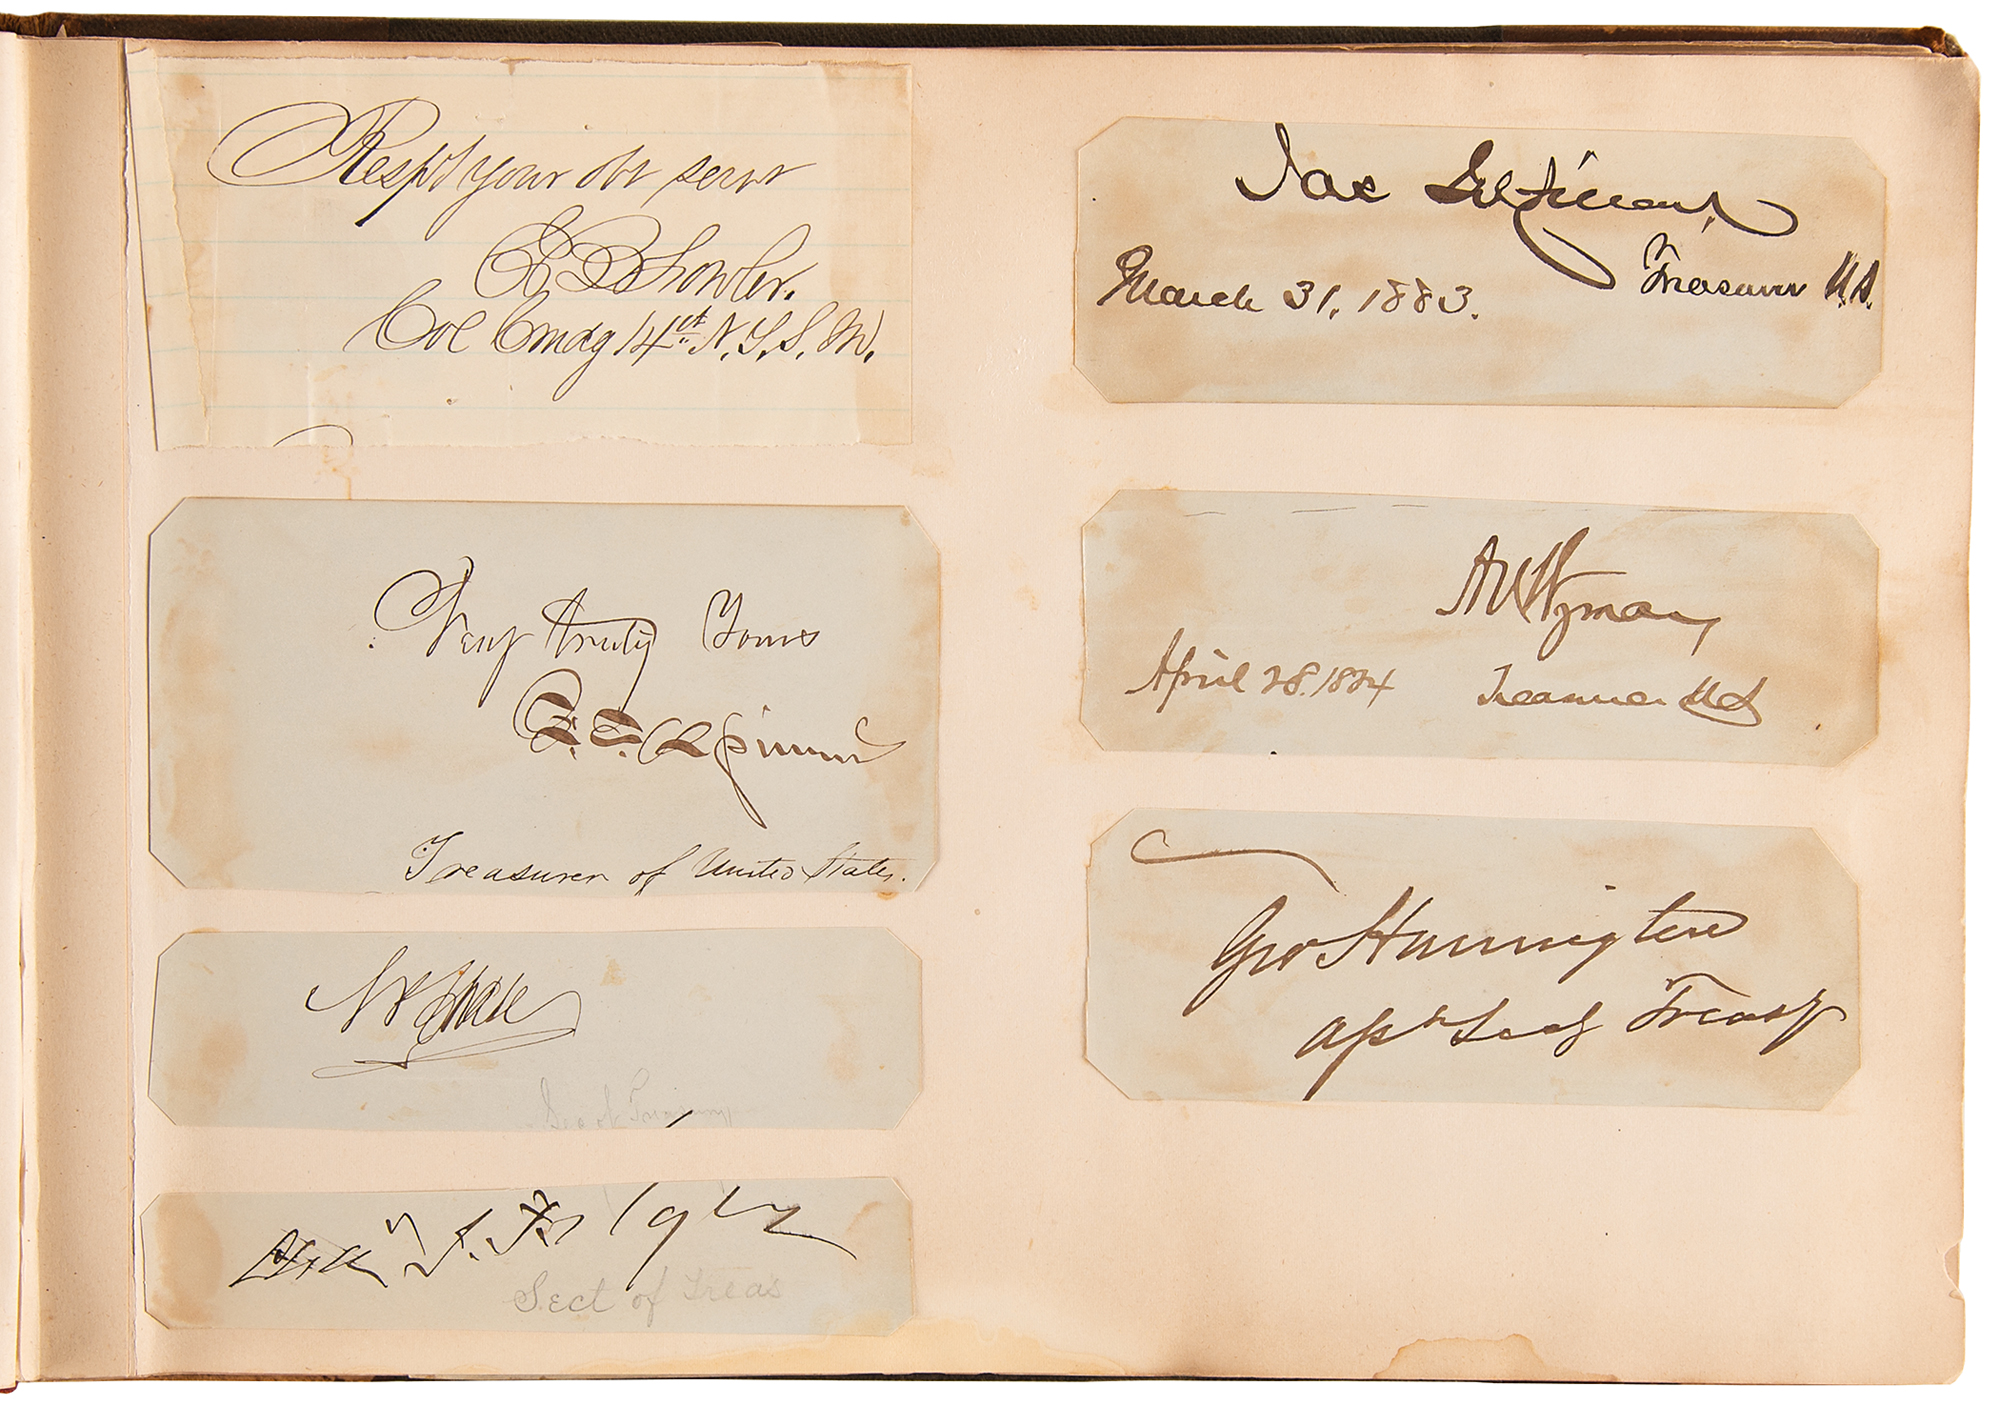 Respt your obt servt
E B Fowler.
Col Cmdg 14th N. Y. S. M.
Very truly Yours
F. E. Spinner
Treasurer of United States.
Sec of Treasury
Chas J. Folger
Sect of Treas
Jas Gilfillan,
March 31, 1883. Treasurer U.S.
A U Wyman
April 28. 1884 Treasurer US
Geo Harrington
Asst Secy Treasy